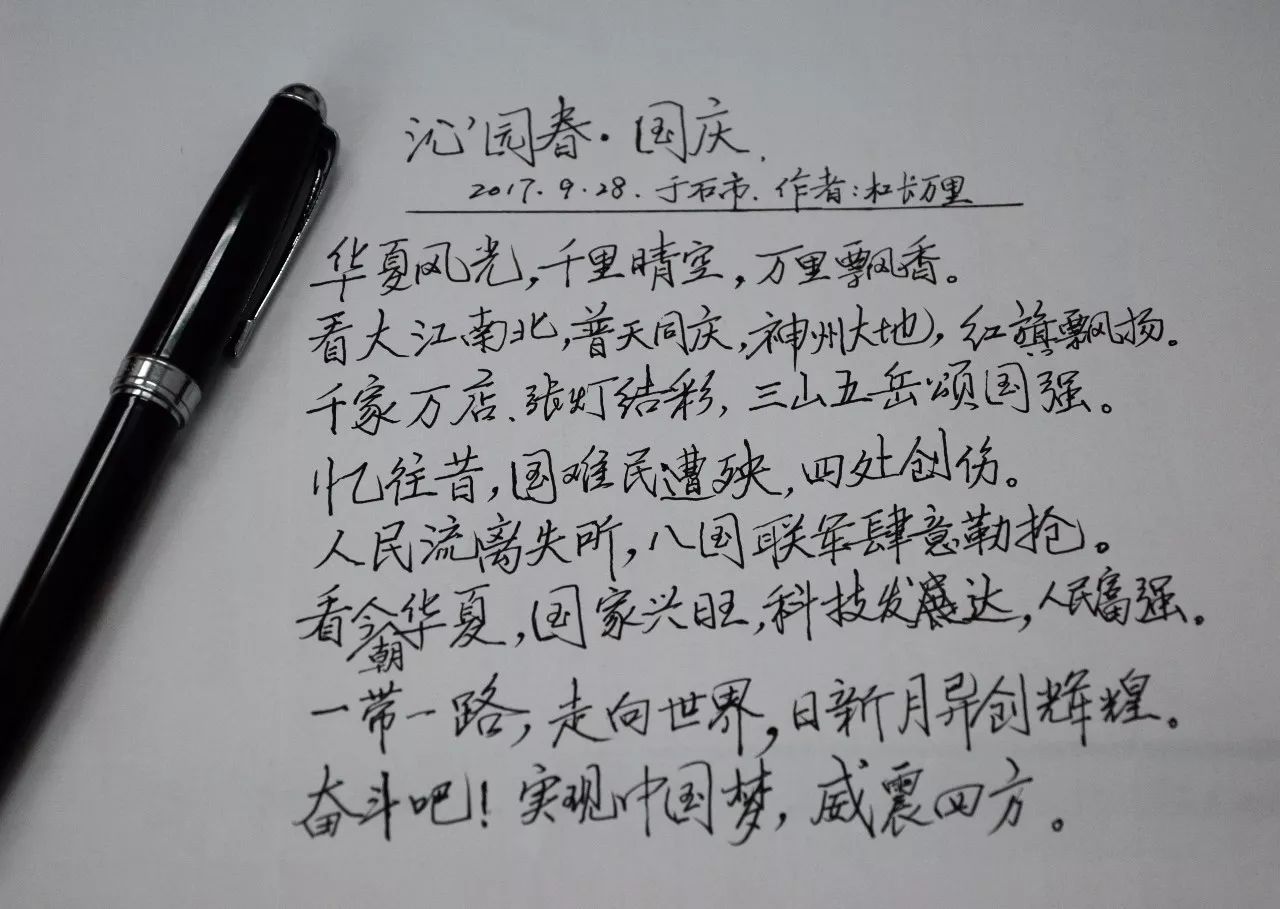 沁园春·国庆.
2017.9.28.于石市.作者:杜长万里
华夏风光,千里晴空,万里飘香。
看大江南北,普天同庆,神州大地,红旗飘扬。
千家万店、张灯结彩,三山五岳颂国强。
忆往昔,国难民遭殃,四处创伤。
人民流离失所,八国联军肆意勒抢。
看今朝华夏,国家兴旺,科技发达,人民富强。
一带一路,走向世界,日新月异创辉煌。
奋斗吧!实现中国梦,威震四方。